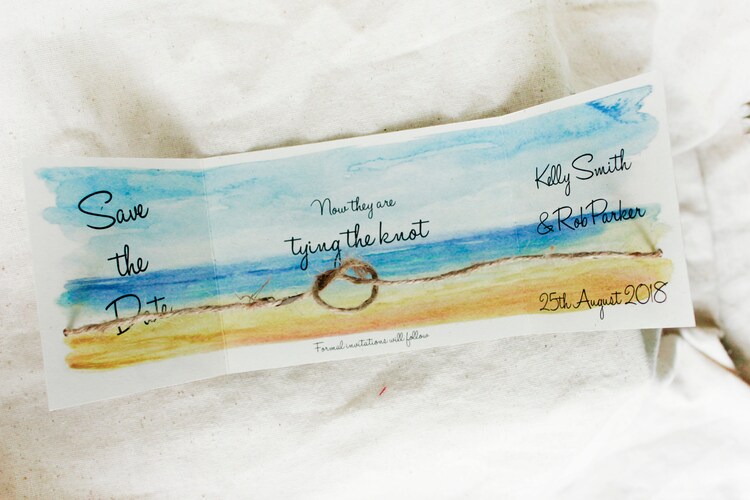 Save
the
Date
Now they are
tying the knot
Formal invitations will follow
Kelly Smith
& Rob Parker
25th August 2018